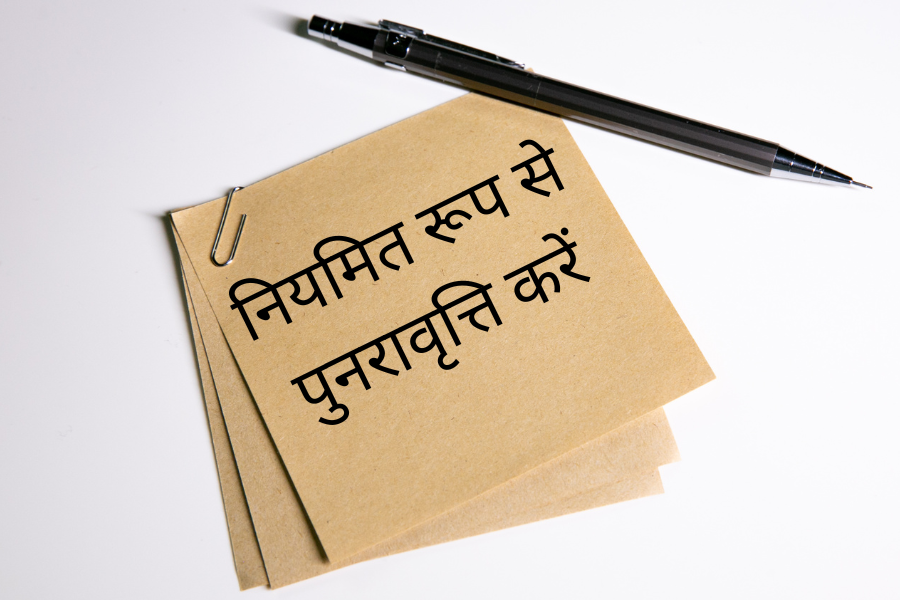 नियमित रूप से
पुनरावृत्ति करें